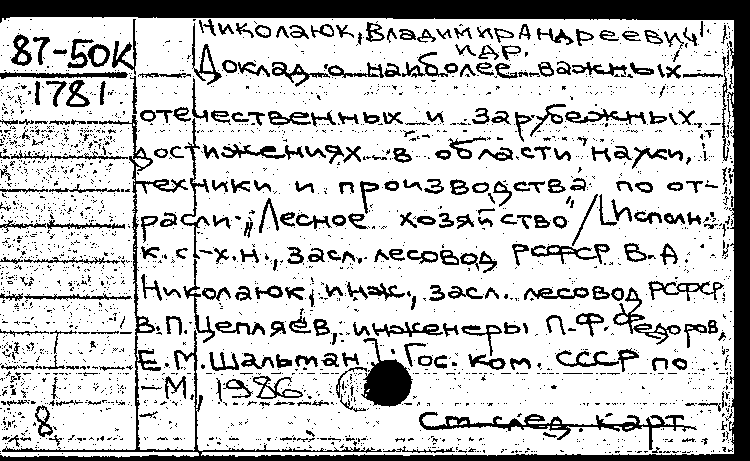 Николаюк, Владимир Андреевич
и др.
87-50К
1781
Доклад о наиболее важных
отечественных и зарубежных
достижениях в области науки,
техники и производства по от-
расли: „Лесное хозяйство“ / [Исполн.:
к.с.-х.н., засл. лесовод РСФСР В.А.
Николаюк, инж., засл. лесовод РСФСР
В.П. Цепляев, инженеры П.Ф. Федоров,
Е.М. Шальман]; Гос. ком. СССР по
-М., 1986.
8
См след. карт.